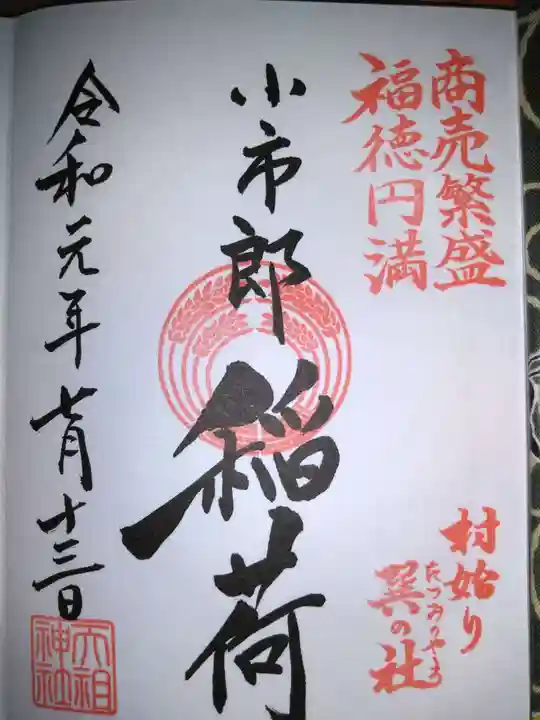 商売繁盛
福徳円満
村始り
巽の社
たつみのやしろ
小市郎稲荷
令和元年七月十三日
大祖
神社